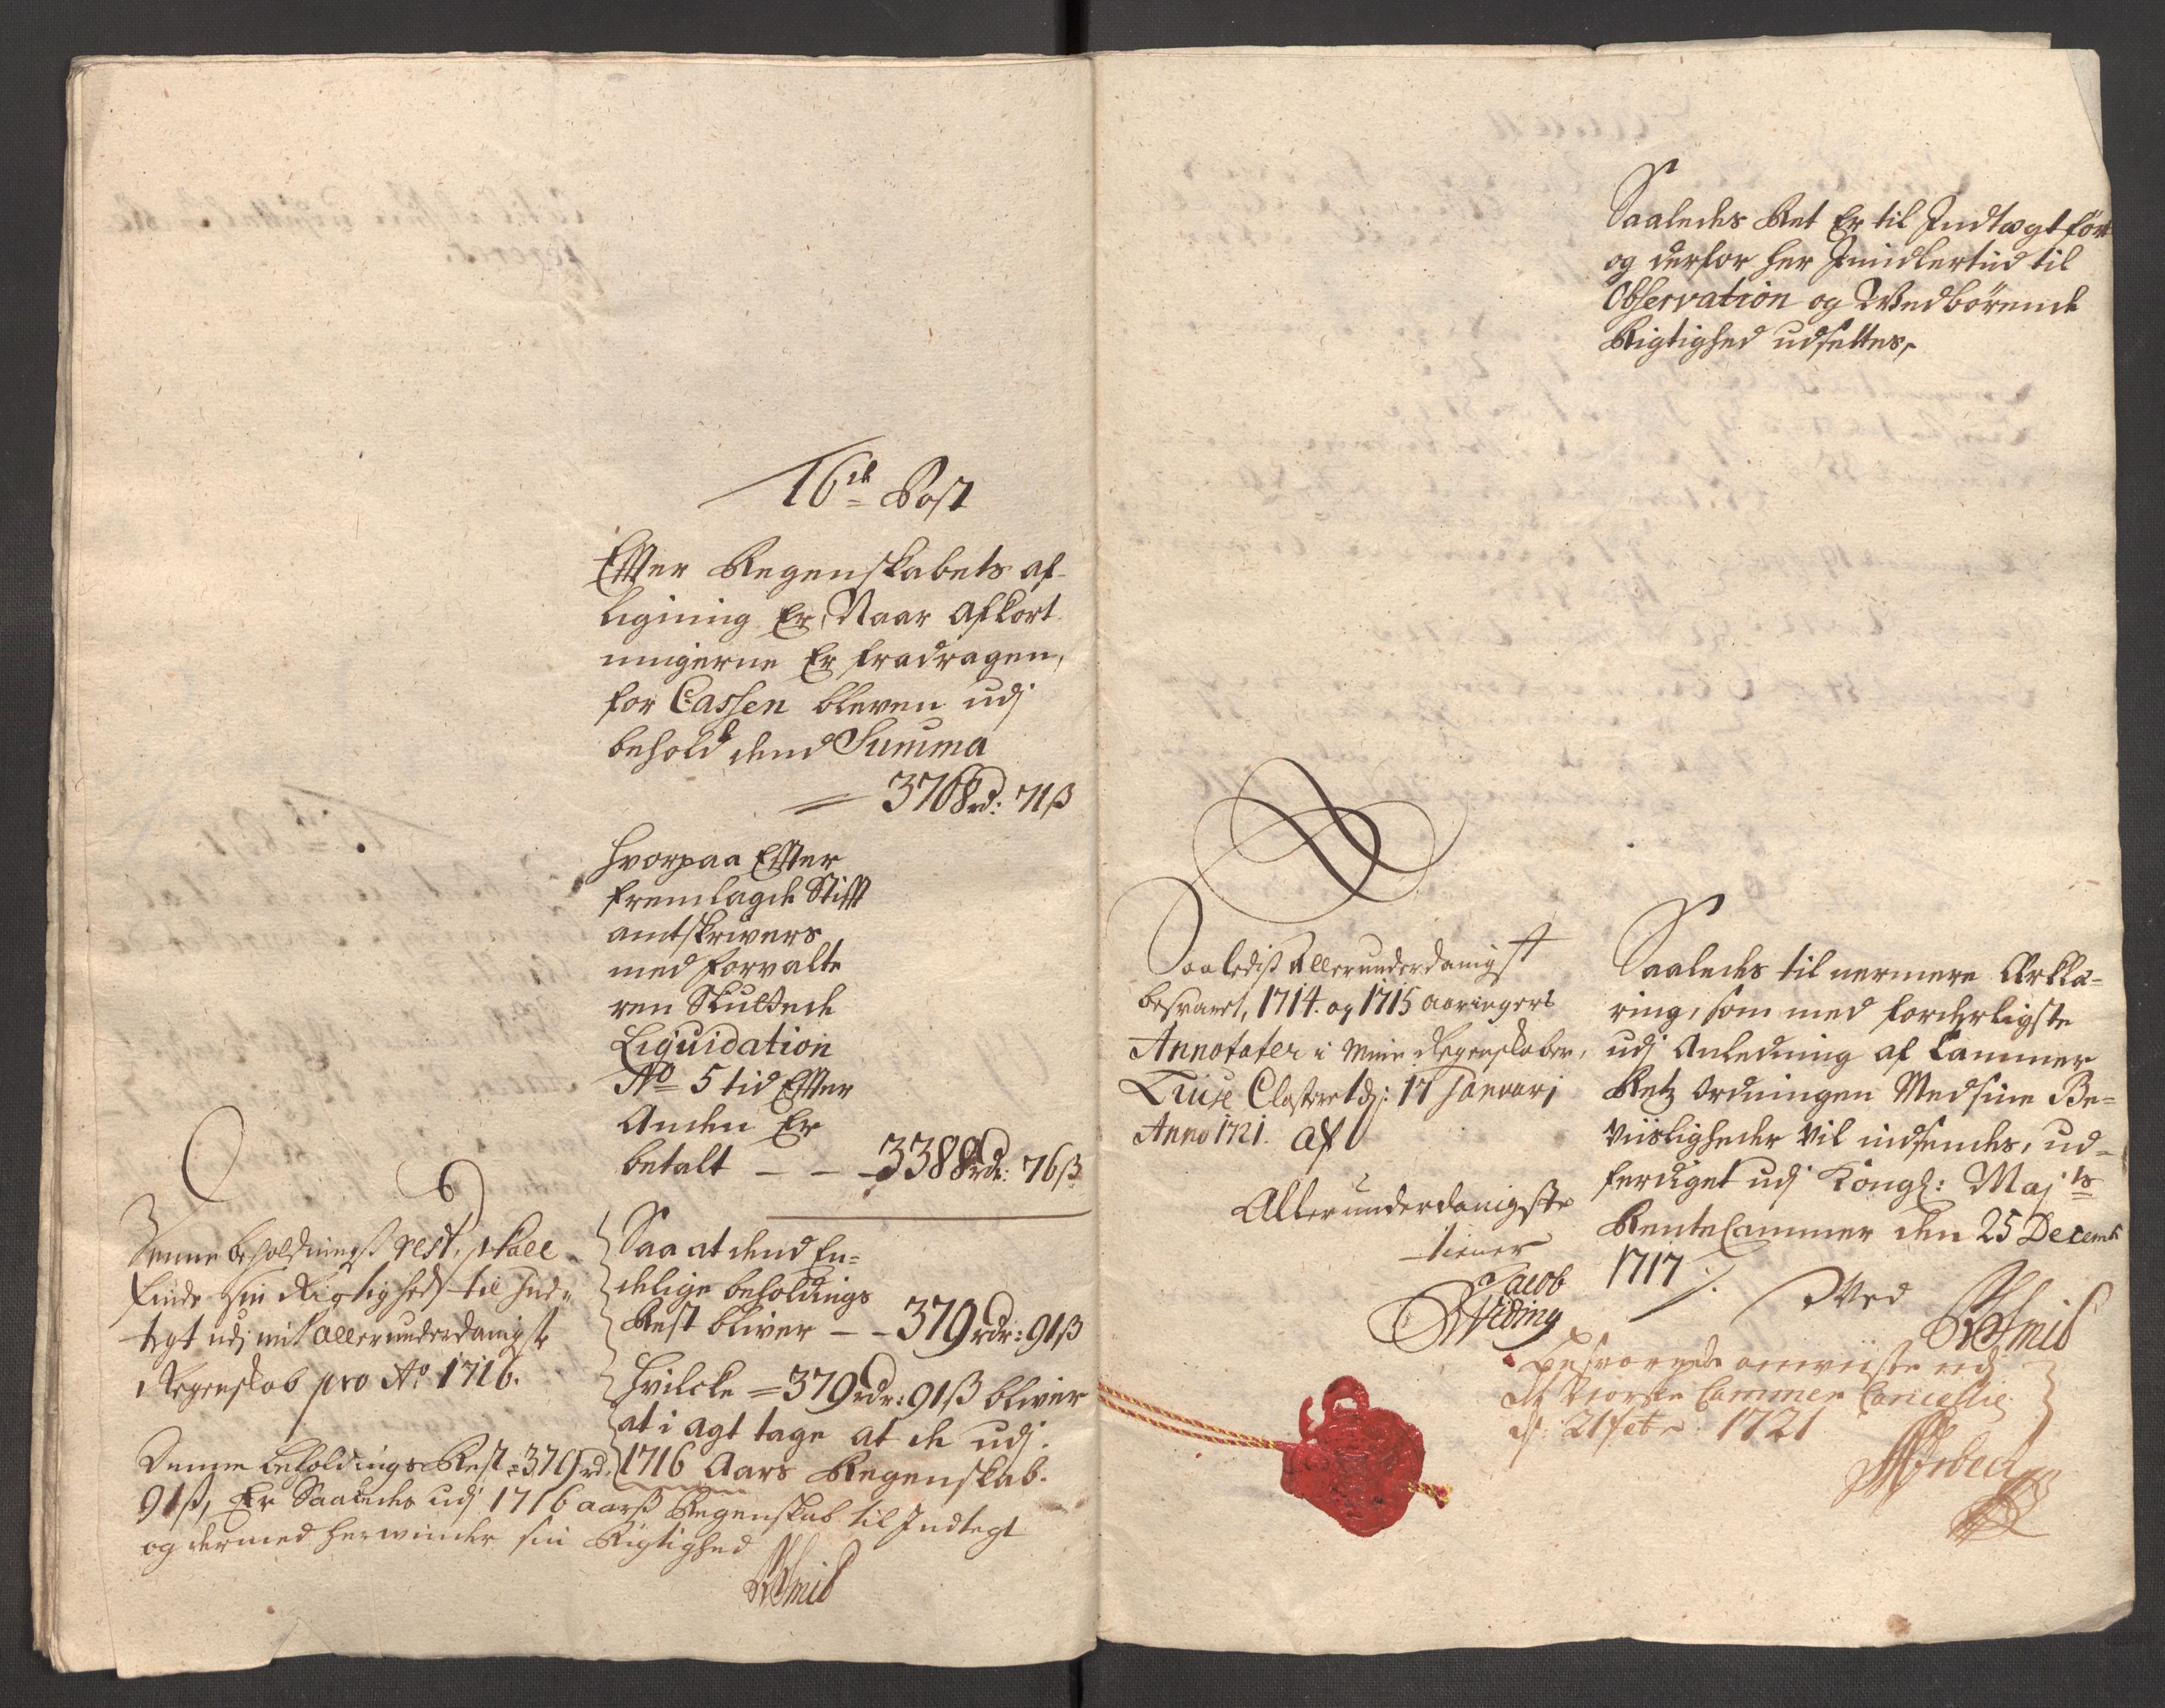 16de Post
Efter Regenskabets af-
ligning Er, Naar afkort
ningerne Er fradragen,
for Cassen bleven udj
behold dend Summa
= 3768rd: 71ß
hvorpaa Efter
fremlagde Stifft
amtskrivers
med forvalte
ren Skultede
Liquidation
No 5 tid Efter
Anden Er
betalt - - - 3388rdr: 76ß
Saa at dend En-
delige beholdings
Rest bliver - - 379rdr: 91ß
Hvilcke = 379rdr: 91ß bliver
at i agt tage at de udj
1716 Aars Regenskab.
Denne beholdningß rest, skall
finde sin Rigtighed til Ind-
tegt udj mit allerunderdanigste
Regenskab pro Ao 1716.
Denne beholdings Rest = 379rd.
91ß, Er Saaledes udj 1716 aarß Regenskab til Indtegt
og dermed herwinder sin Rigtighed
Smid
Saaledes Ret Er til Indtægt ført
og derfor her Imidlertid til
Observation og Wedbörende
Rigtighed udsettes,
Saaledis Allerunderdanigst
besvaret, 1714. og 1715 aaringers
Annotater i Mine Regenskaber,
Liuse Closteret dj: 17 Januarj
Anno 1721. af
Allerunderdanigste
tiener
Jacob
Saaledes til nermere Erklæ-
ring, som med forderligste
udj Anledning af Cammer
Retz Ordningen Med sine Be-
viisligheder vil indsendes, ud-
ferdiget udj Kongl: Majts
RenteCammer den 25 Decemb
1717 /.
Ved
Smid
besvarede anviiste udj
Norske Cammer Cancellie
d: 21 febr: 1721